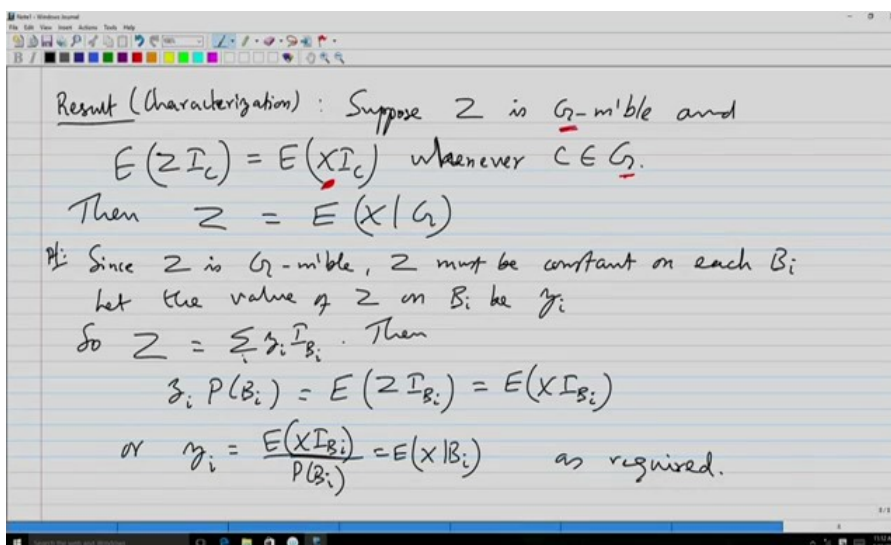 Note1 - Windows Journal
File Edit View Insert Actions Tools Help
Result (Characterization) : Suppose Z is G-m'ble and
E(Z I_C) = E(X I_C) whenever C ∈ G.
Then Z = E(X | G)
Pf: Since Z is G-m'ble, Z must be constant on each B_i
Let the value of Z on B_i be z_i
So Z = Σ_i z_i I_{B_i} . Then
z_i P(B_i) = E(Z I_{B_i}) = E(X I_{B_i})
or z_i = E(X I_{B_i}) / P(B_i) = E(X | B_i) as required.
Search the web and Windows